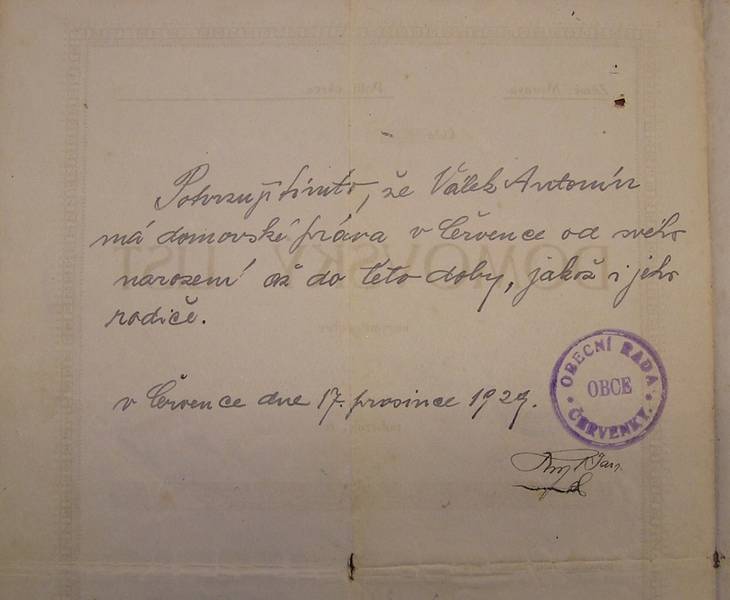 Potvrzuji tímto, že Válek Antonín
má domovské práva v Července od svého
narození až do této doby, jakož i jeho
rodiče.
v Července dne 17. prosince 1929.
OBECNÍ RADA
OBCE
ČERVENKY.
DOMOVSKÝ LIST